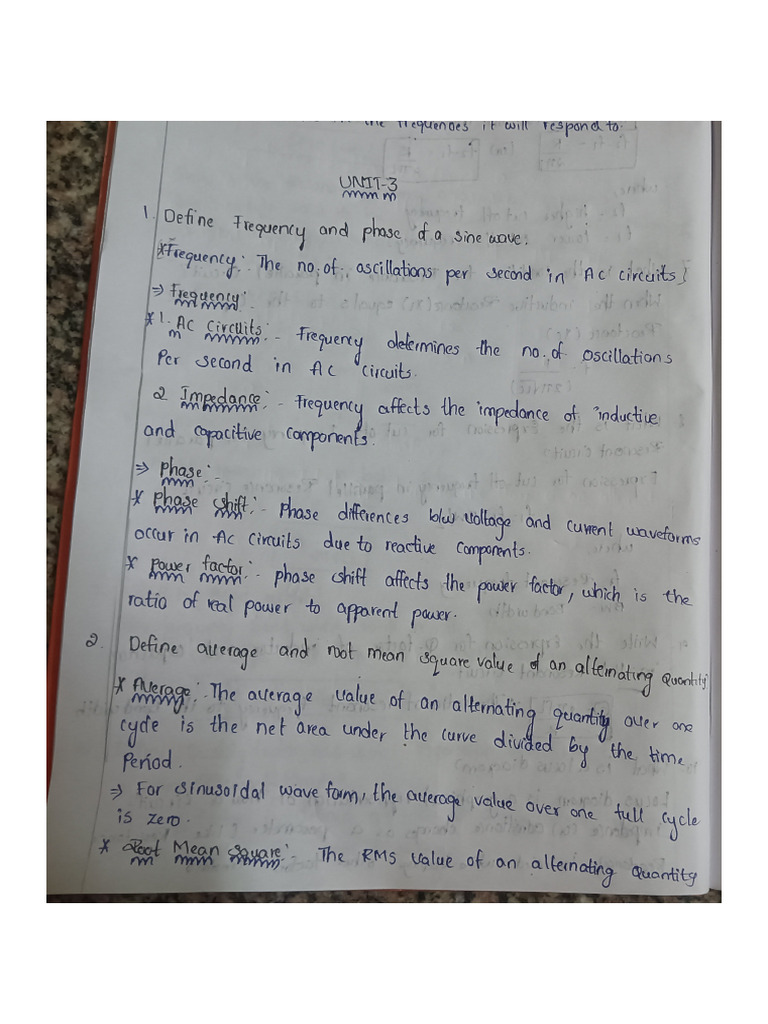 the frequencies it will respond to.
UNIT-3
1. Define Frequency and phase of a sine wave.
*Frequency: The no. of. oscillations per second in Ac circuits}
⇒ Frequency:-
* 1. AC Circuits:- Frequency determines the no. of oscillations
Per second in Ac circuits.
2 Impedance:- Frequency affects the impedance of inductive
and capacitive components.
⇒ Phase:-
* Phase shift:- Phase differences b/w voltage and current waveforms
occur in Ac circuits due to reactive components.
* Power factor:- phase shift affects the power factor, which is the
ratio of real power to apparent power.
2. Define average and root mean square value of an alternating Quantity
* Average:- The average value of an alternating quantity over one
cycle is the net area under the curve divided by the time
Period.
⇒ For sinusoidal wave form, the average value over one full cycle
is zero.
* Root Mean Square:- The RMS value of an alternating Quantity